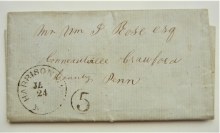 Mr Wm J Rose Esq
Crawford
County Penn
HARRISON
JA
24
5